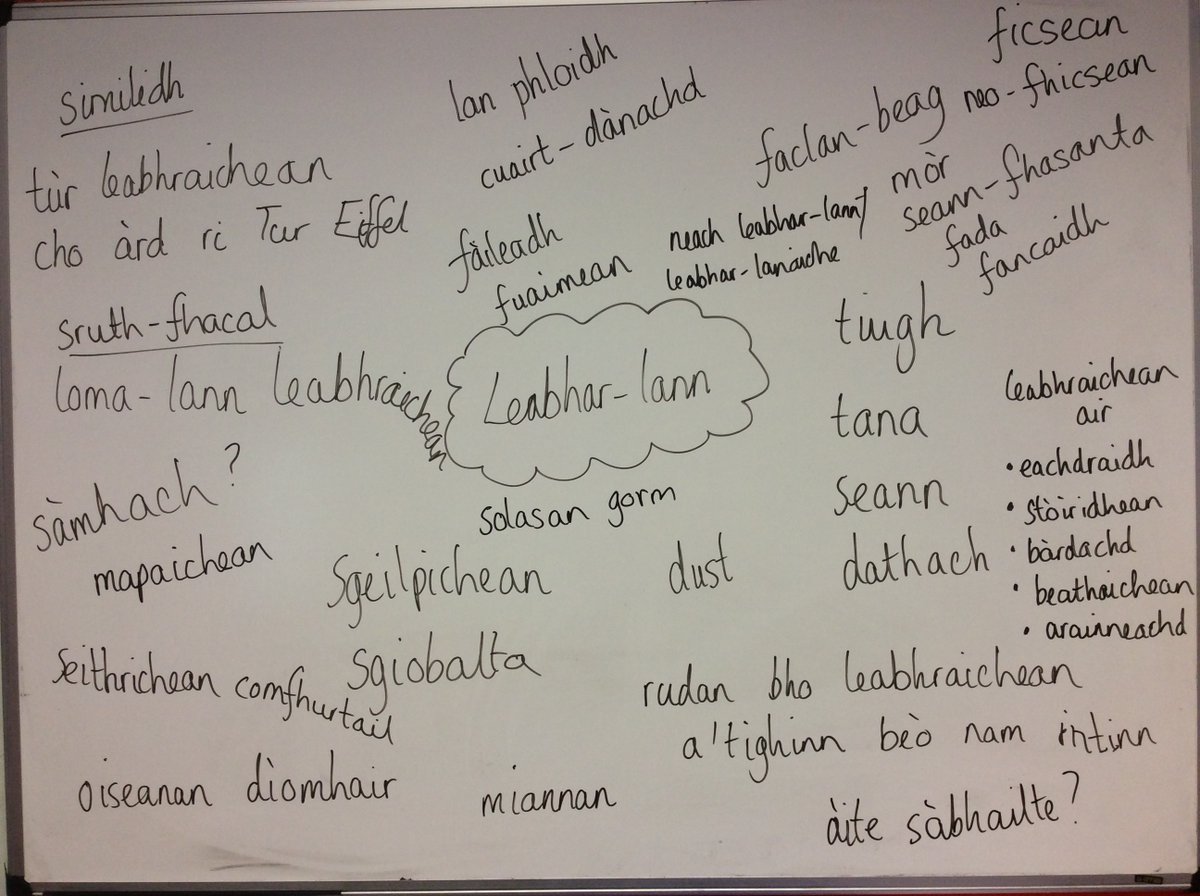 similidh
tùr leabhraichean
cho àrd ri Tur Eiffel
sruth-fhacal
loma-lann leabhraichean
sàmhach?
mapaichean
seithrichean comfhurtail
oiseanan dìomhair
lan phloidh
cuairt-dànachd
fàileadh
fuaimean
neach leabhar-lann/
leabhar-lanaiche
Leabhar-lann
solasan gorm
sgeilpichean
sgiobalta
dust
miannan
ficsean
neo-fhicsean
faclan-beag
mòr
seann-fhasanta
fada
fancaidh
tiugh
tana
seann
dathach
leabhraichean
air
• eachdraidh
• stòiridhean
• bàrdachd
• beathaichean
• arainneachd
rudan bho leabhraichean
a'tighinn beò nam inntinn
àite sàbhailte?